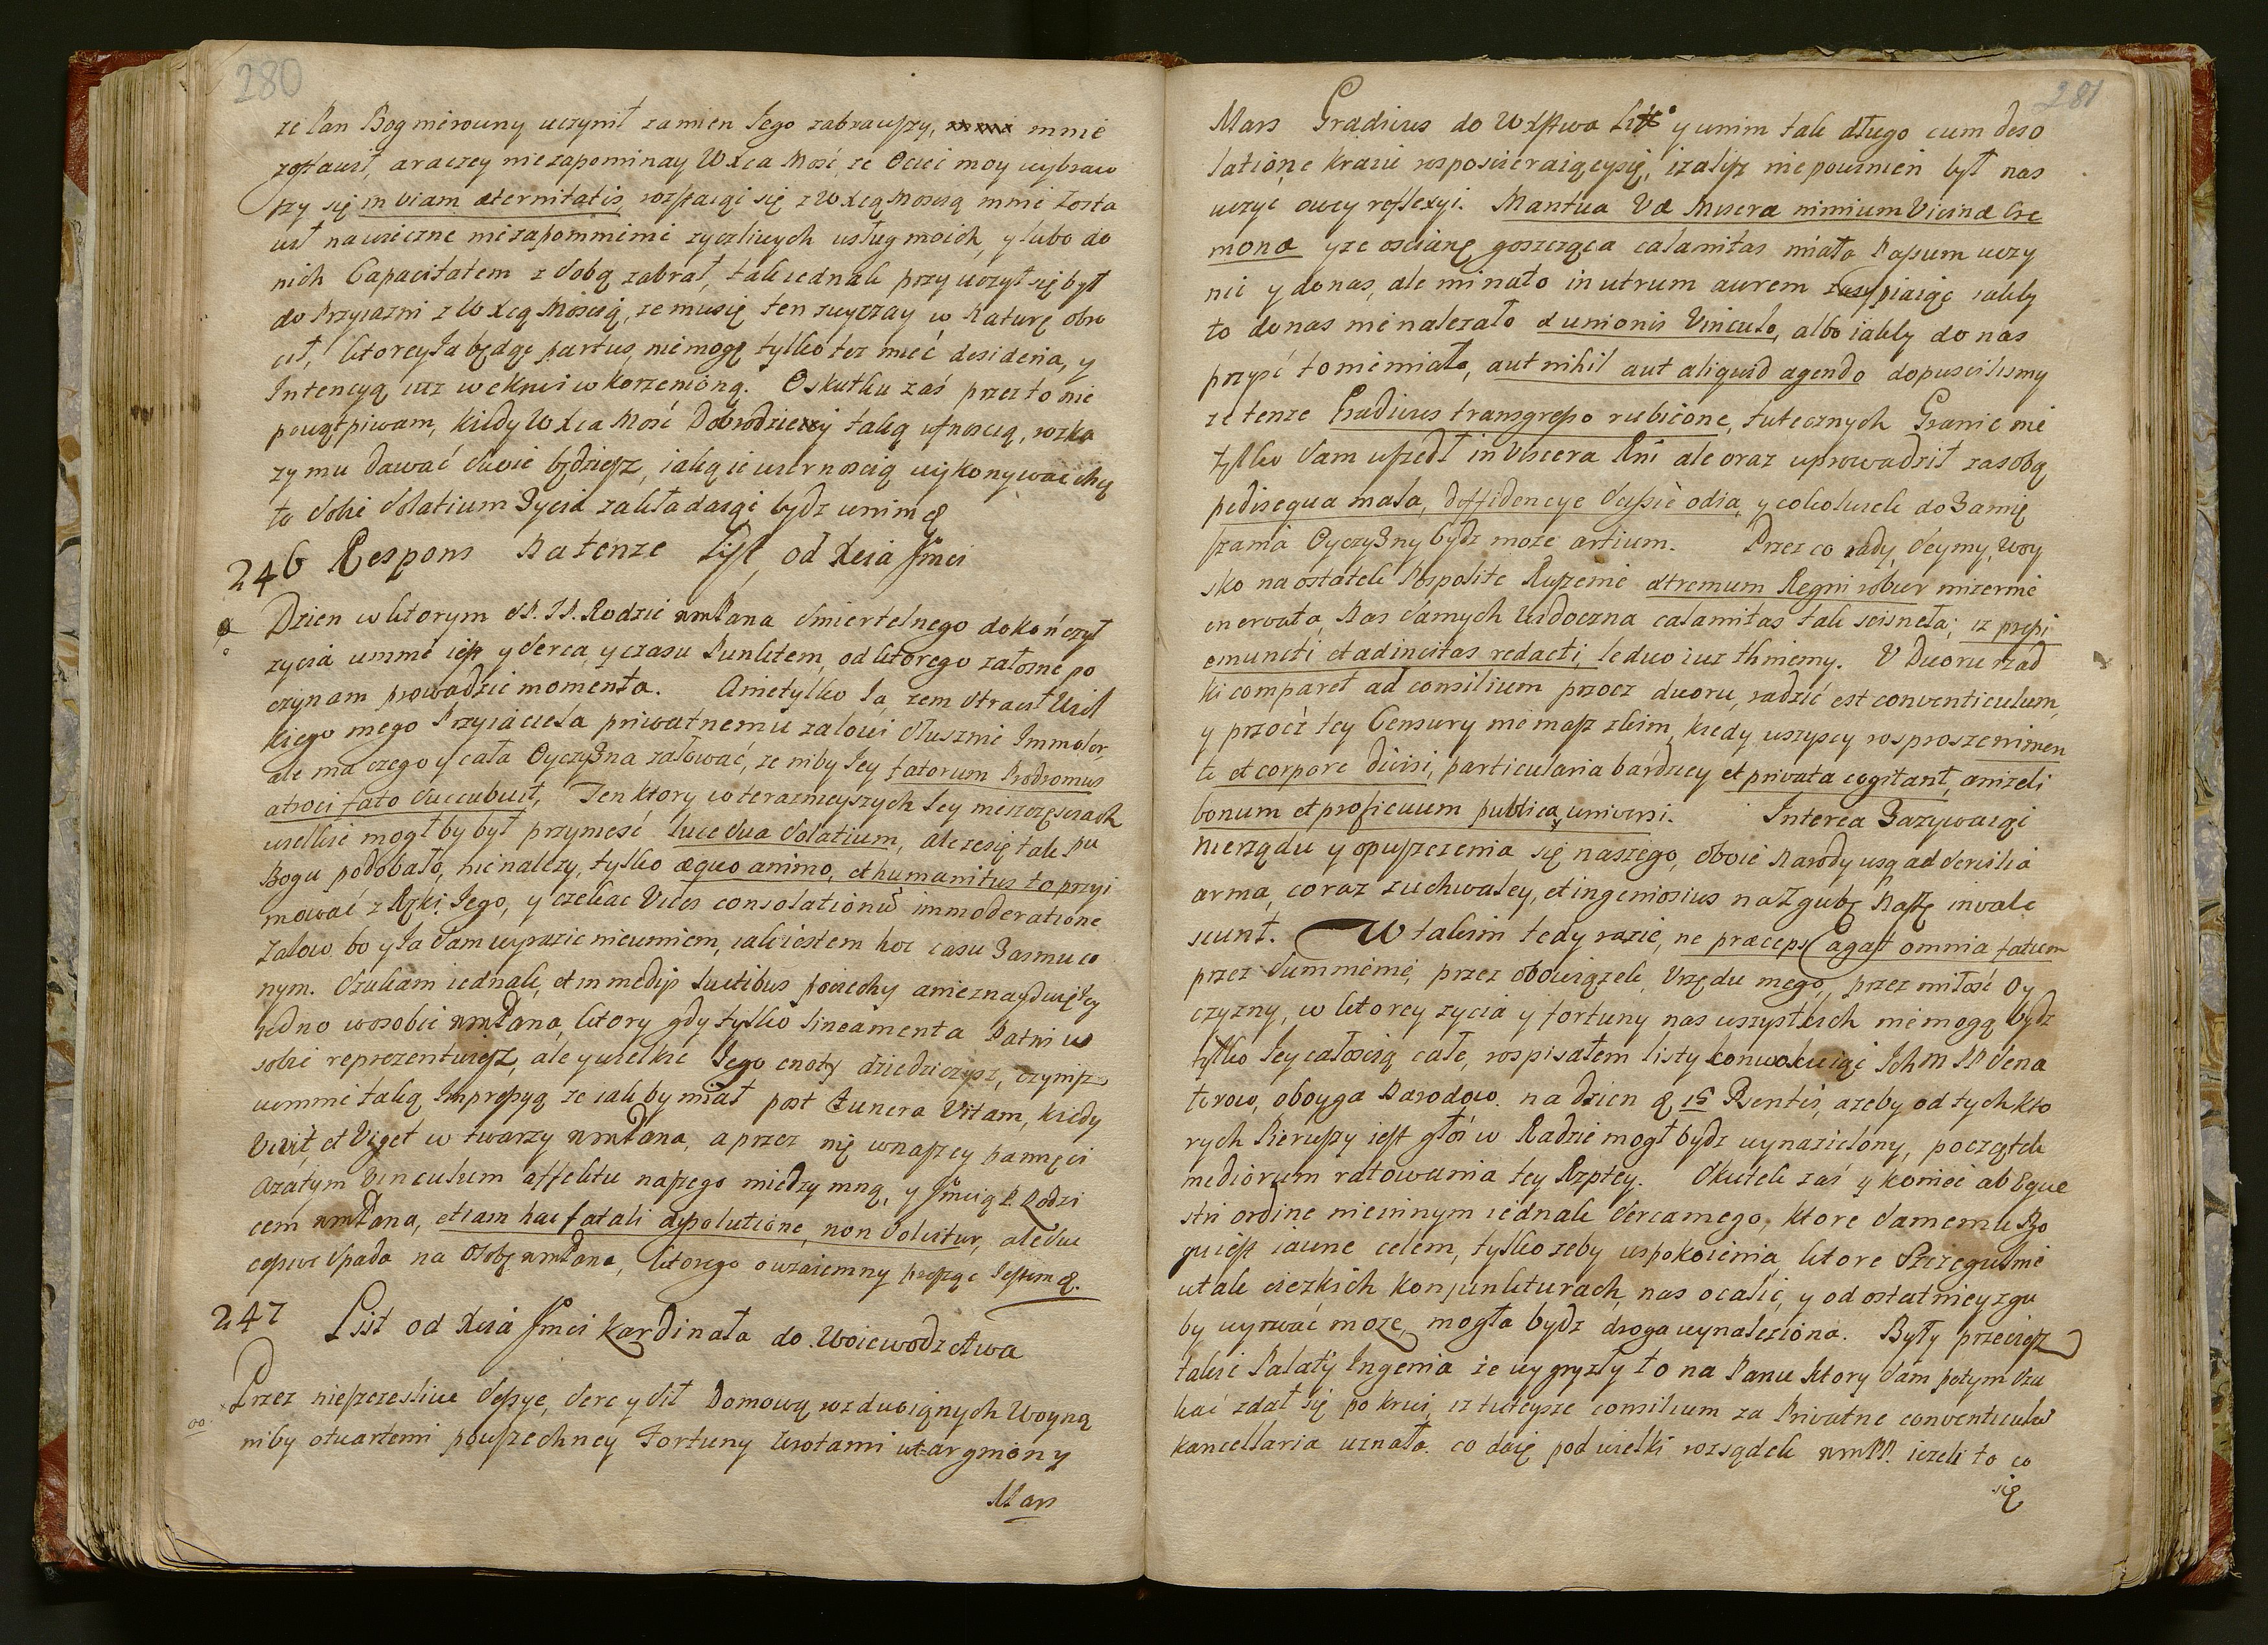 280
ze Pan Bog nierowny uczynił zamien Jego zabrawszy, mnie
zostawił, a raczey nie zapominay W Xca Mość, ze Ociec moy wybraw
szy się in viam æternitatis rozstaiąc się z W Xcą Moscią mnie zosta
wił na wieczne niezapomnienie zyczliwych usług moich, y lubo do
nich Capacitatem z sobą zabrał, tak iednak przyuczył się był
do Przyiazni z W Xcą Moscią, ze musię ten zwyczay w Naturę obro
cił, ktorey Ja będąc partus, nie mogę tylko tez miec desideria, y
Intencyą iuz we krwi wkorzenioną. O skutku zaś przez to nie
powątpiwam, kiedy W Xca Mość Dobrodzieiy taką ufnoscią, rozka
zy mu dawać swoie będziesz, iaką ie wiernoscią wykonywać chcę
to sobie solatium Zycia zakładaiąc bydz unim &
246 Respons Na tenze List od Xcia Jmci
Dzien w ktorym S. P. Rodzic wmPana smiertelnego dokończył
zycia umnie iest y serca y czasu Punktem, od ktorego załosne po
czynam prowadzic momenta. A nietylko Ja, zem stracił Wiel
kiego mego Przyiaciela priwatnemu zalowi słusznie Immolor,
ale ma czego y cała Oyczyzna załować, ze niby Jey fatorum Prodromus
atroci fato succubuit, Ten ktory w teraznieyszych Jey nieszczęsciach
wielkie mogł by był przyniesć luce sua solatium, ale ze się tak Pu
Bogu podobało, nie nalezy, tylko æquo animo, et humanitus to przyi
mować z Ręki Jego, y czekac Vices consolationũ in moderatione
Zalow bo y Ja sam wyrazic nieumiem, iak iestem hoc casu Zasmuco
nym. Szukam iednak, et in medijs luctibus pociechy a nieznayduię Jey
iedno w osobie wmPana, ktory gdy tylko lineamenta Patris w
sobie reprezentuiesz, ale y wielkie Jego cnoty dziedziczysz, czynisz
wemnie taką Impressyą ze iak by miał post funera Vitam, kiedy
Vivit, et Viget w twarzy wmPana, a przez nię w naszey pamięci
Azatym Vinculum affektu naszego miedzy mną, y Jmcią P. Rodzi
cem wmPana, etiam hac fatali dissolutione, non solvitur, ale suc
cessive spada na Osobę wmPana, ktorego o wzaiemny proszę Jestem &.
247 List od Xcia Jmci Kardinała do Woiewodztwa
Przez nieszczesliwe sessye, serc y sił Domową wzdwignych Woyną
niby otwartemi powszechney Fortuny wrotami wtargniony
Mars
281
Mars Gradivus do W Xstwa Litt° y wnim tak długo cum deso
latione kraiu rosposcieraiącysię, izalisz niepowinien był nas
uczyć owey reflexyi. Mantua Væ Miseræ nimium Vicina Cre
monæ y ze oscianę goszcząca calamitas miała Passum uczy
nić y do nas, ale mi na to in utrum aurem zasypiaiąc iakby
to do nas nie nalezało & unionis Vinculo, albo iakby do nas
przyść to niemiało, aut nihil aut aliquid agendo dopuscilismy
ze tenze Gradivus transgresso rubicone, tutecznych Granic nie
tylko sam wszedł in Viscera Rni ale oraz uprowadził za sobą
pedisequa mala, diffidencye scissie odia, y cokolwiek do Zamię
szania Oyczyzny bydz moze artium. Przez co rady, seymy, Woy
sko na ostatek Pospolite Ruszenie extremum Regni robur mizernie
enervata, Nas samych widoczna calamitas tak scisneła; iz pressi
emuncti et ad incitas redacti ledwo iuz tchniemy. U Dworu rzad
ki comparet ad consilium procz dworu, radzić est conventiculum,
y procz tey Censury nie masz z kim, kiedy wszyscy rosproszeni men
te et corpore divisi, particularia bardziey et privata cogitant, anizeli
bonum et proficuum publica universi. Interea Zazywaiąc
nierządu y opuszczenia się naszego, oboie Narody usq ad servilia
arma, co raz zuchwaley, et ingeniosius na Zgubę Naszę invale
scunt. W takim tedy razie, ne præceps agat omnia fatum
przez summienie, przez obowiązek, Vrzędu mego, przez miłość Oy
czyzny, w ktorey zycia y fortuny nas wszystkich nie mogą bydz
tylko Jey całoscią całe, rospisałem listy konwokuiąc Ichm PP Sena
torow, oboyga Narodow na dzien & 15 Pentis, azeby od tych kto
rych Pierwszy iest głos w Radzie mogł bydz wynaziclony, początek
mediorum ratowania tey Rzptey. Skutek zaś y koniec ab Eque
stri ordine nieinnym iednak serca mego, ktore samemu Bo
gu iest iawne celem, tylko zeby uspokoienia ktore Szczegulnie
w tak ciezkich konjunkturach nas ocalić, y od ostatniey zgu
by wyrwać moze, mogła bydz droga wynaleziona. Były przeciesz
takie Palaty Ingenia ze wygryzły to na Panu ktory sam potym szu
kać zdał się po krwi, iz tuteysze consilium za Privatne conventiculũ
kancellaria uznała. co daię pod wielki rozsądek wmPP. iezeli to co
się